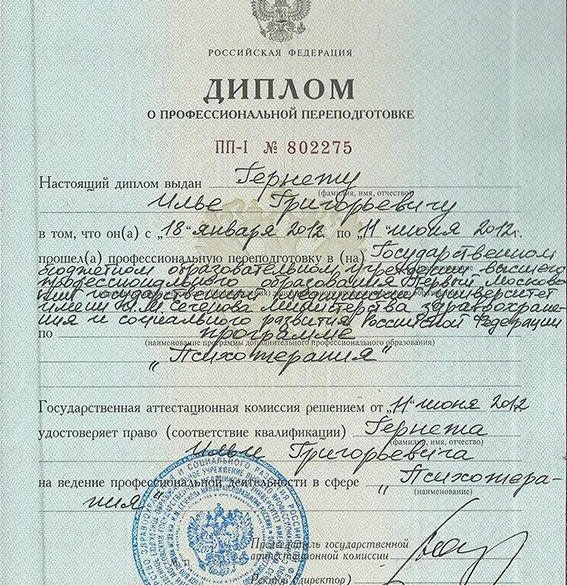 РОССИЙСКАЯ ФЕДЕРАЦИЯ
ДИПЛОМ
О ПРОФЕССИОНАЛЬНОЙ ПЕРЕПОДГОТОВКЕ
ПП-I № 802275
Настоящий диплом выдан Гернету
(фамилия, имя, отчество)
Илье Григорьевичу
в том, что он(а) с „18“ января 2012 по „11“ июня 2012 г.
прошел(а) профессиональную переподготовку в (на) Государственном
бюджетном образовательном учреждении высшего
профессионального образования Первый Московс-
кий государственный медицинский университет
имени И.М. Сеченова Министерства здравоохране-
ния и социального развития Российской Федерации
по программе
(наименование программы дополнительного профессионального образования)
„Психотерапия“
Государственная аттестационная комиссия решением от „11“ июня 2012
удостоверяет право (соответствие квалификации) Гернета
(фамилия, имя, отчество)
Ильи Григорьевича
на ведение профессиональной деятельности в сфере „Психотера-
(наименование)
пия“
Председатель государственной
аттестационной комиссии
Ректор (директор)